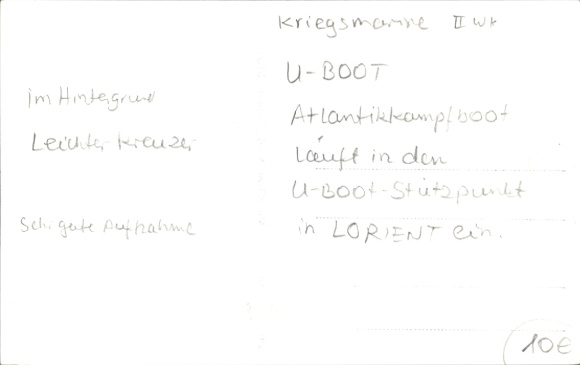 Kriegsmarine II Wk
U-BOOT
Atlantikkampfboot
läuft in den
U-BOOt-Stützpunkt
in LORIENT ein.
im Hintergrund
Leichter Kreuzer
Sehr gute Aufnahme
10€